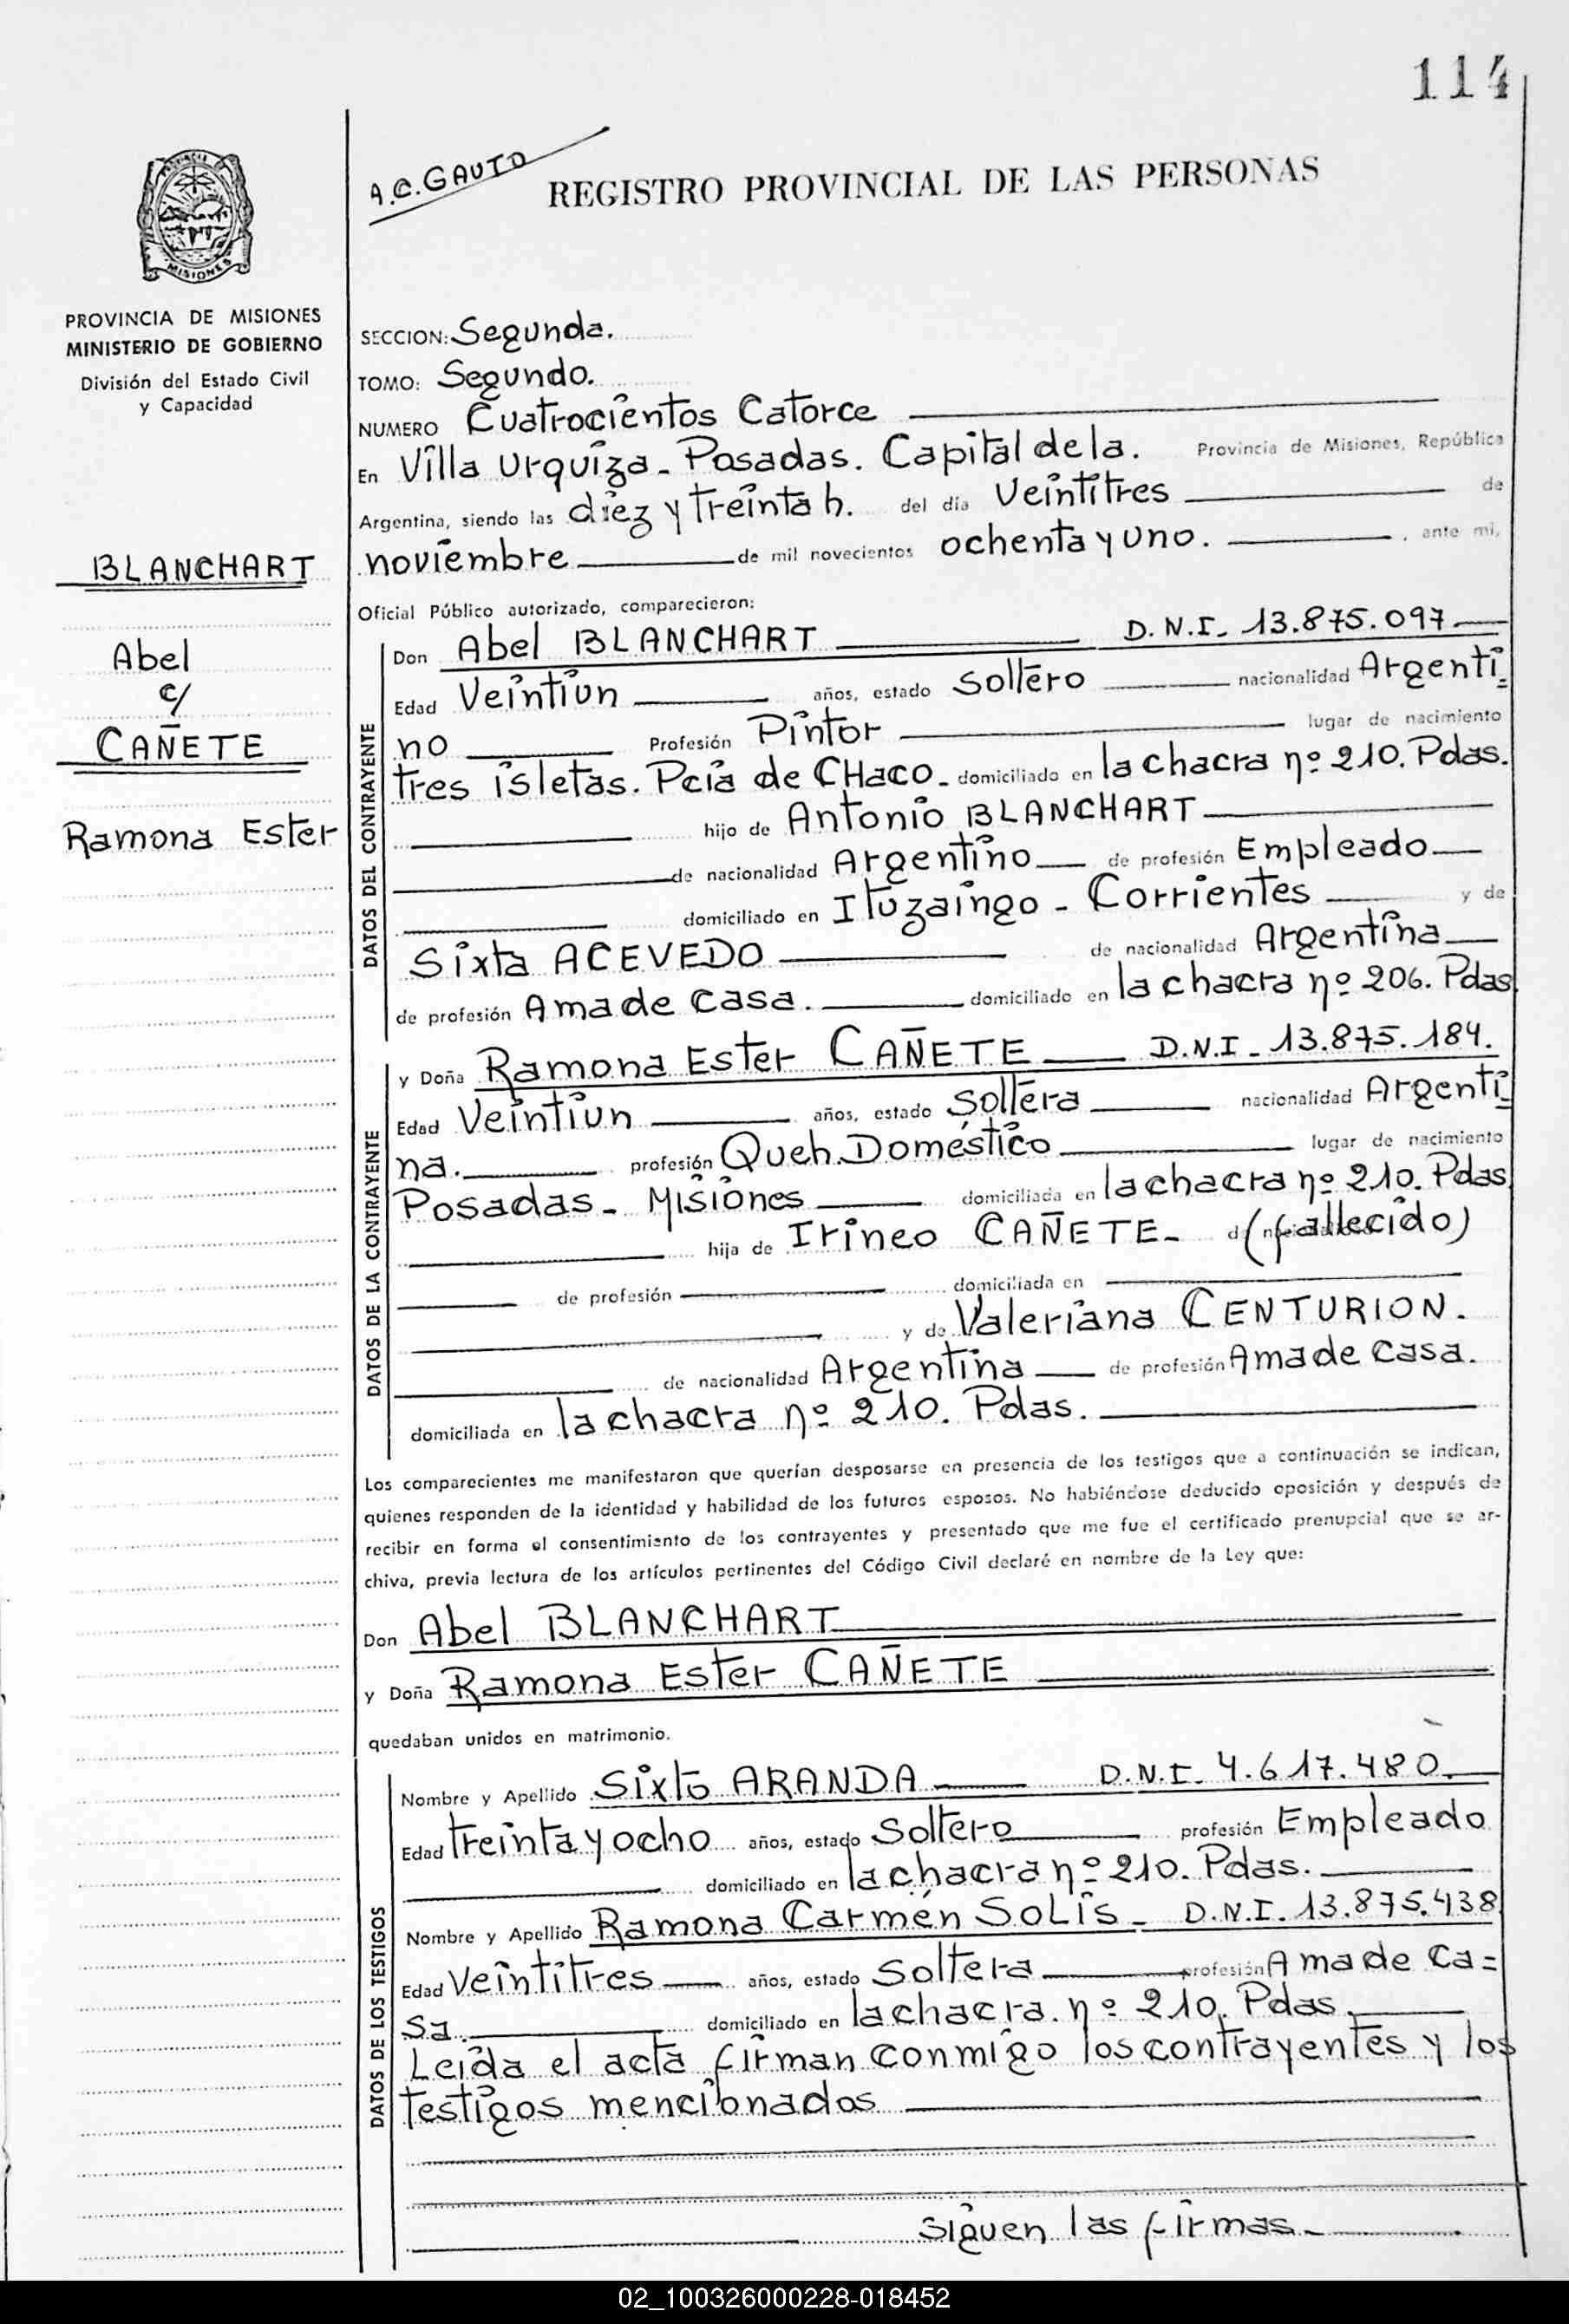 114
A.C. GAUTO
REGISTRO PROVINCIAL DE LAS PERSONAS
MISIONES
PROVINCIA DE MISIONES
MINISTERIO DE GOBIERNO
División del Estado Civil
y Capacidad
BLANCHART
Abel
c/
CAÑETE
Ramona Ester
SECCION: Segunda.
TOMO: Segundo.
NUMERO Cuatrocientos Catorce
En Villa Urquiza - Posadas. Capital de la. Provincia de Misiones, República
Argentina, siendo las diez y treinta h. del día Veintitres de
noviembre de mil novecientos ochenta y uno. , ante mi,
Oficial Público autorizado, comparecieron:
DATOS DEL CONTRAYENTE
Don Abel BLANCHART D.N.I. 13.875.097.
Edad Veintiun años, estado Soltero nacionalidad Argenti
no Profesión Pintor lugar de nacimiento
tres isletas. Pcia de CHaco. domiciliado en la chacra nº 210. Pdas.
hijo de Antonio BLANCHART
de nacionalidad Argentino de profesión Empleado
domiciliado en Ituzaingo - Corrientes y de
Sixta ACEVEDO de nacionalidad Argentina
de profesión Ama de casa. domiciliado en la chacra nº 206. Pdas
DATOS DE LA CONTRAYENTE
y Doña Ramona Ester CAÑETE D.N.I - 13.875.184.
Edad Veintiun años, estado Soltera nacionalidad Argenti
na. profesión Queh. Doméstico lugar de nacimiento
Posadas - Misiones domiciliada en la chacra nº 210. Pdas
hija de Irineo CAÑETE - (fallecido)
de profesión domiciliada en
y de Valeriana CENTURION.
de nacionalidad Argentina de profesión Ama de casa.
domiciliada en la chacra nº 210. Pdas.
Los comparecientes me manifestaron que querían desposarse en presencia de los testigos que a continuación se indican,
quienes responden de la identidad y habilidad de los futuros esposos. No habiéndose deducido oposición y después de
recibir en forma el consentimiento de los contrayentes y presentado que me fue el certificado prenupcial que se ar-
chiva, previa lectura de los artículos pertinentes del Código Civil declaré en nombre de la Ley que:
Don Abel BLANCHART
y Doña Ramona Ester CAÑETE
quedaban unidos en matrimonio.
DATOS DE LOS TESTIGOS
Nombre y Apellido Sixto ARANDA D.N.I. 4.617.480.
Edad treinta y ocho años, estado Soltero profesión Empleado
domiciliado en la chacra nº 210. Pdas.
Nombre y Apellido Ramona Carmén SoLis - D.N.I. 13.875.438
Edad Veintitres años, estado Soltera profesión Ama de ca=
sa. domiciliado en la chacra. nº 210. Pdas.
Leida el acta firman conmigo los contrayentes y los
testigos mencionados
siguen las firmas.
02_100326000228-018452